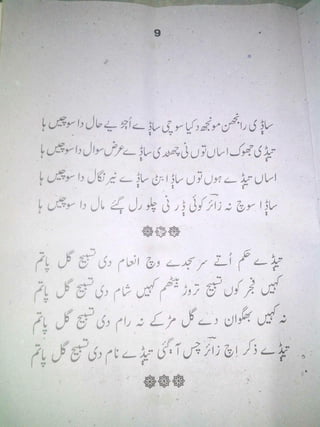 9
ساݙی رانجھن مونجھ دکیا سوچی ساݙے اُجڑیے حال دا سوچیں ہا
تیݙی جھوک اساں توں نی چھٹدی ساݙے عرض سوال دا سوچیں ہا
اساں تیݙے ہوں توں ساݙا بݨ ساݙے نیر نکال دا سوچیں ہا
ساݙا سوچ نہ زائر کوئی ݙر نی چلو رل گئے مال دا سوچیں ہا
تیݙے حکم اُتے سر سجدے وچ انعام دی تسبیح گل پاتم
کہیں فجر کوں تسبیح تروڑ بیٹھم کہیں شام دی تسبیح گل پاتم
نہ کہیں بھگوان دے گل مڑکے نہ رام دی تسبیح گل پاتم
تیݙے ذکر اچ زائر چس آ گئی تیݙے نام دی تسبیح گل پاتم